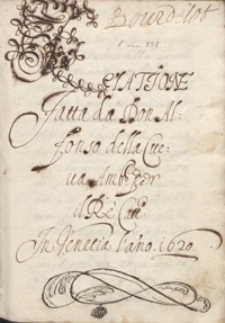 Bourdelot
RELATIONE
fatta da Don Al-
fonso della Cue-
ua Amb.r per
il Rè Catt.
In Venetia l'año. 1620.